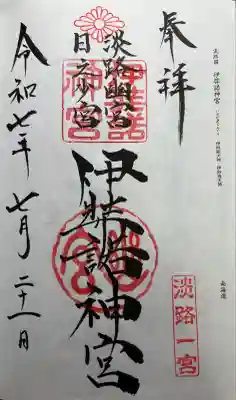 奉拝
伊弉諾神宮
淡路幽宮
日之少宮
伊弉諾神宮
淡路一宮
令和七年七月二十一日